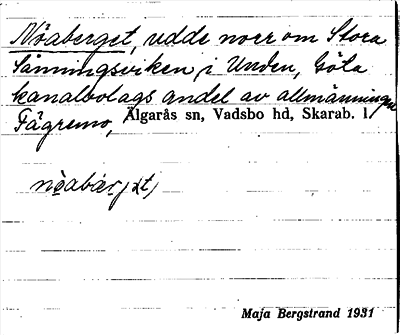 Nöaberget, udde norr om Stora
Sänningsviken i Unden, Göta
kanalbolags andel av allmänningen
Fägremo, Älgarås sn, Vadsbo hd, Skarab. l.
Maja Bergstrand 1931